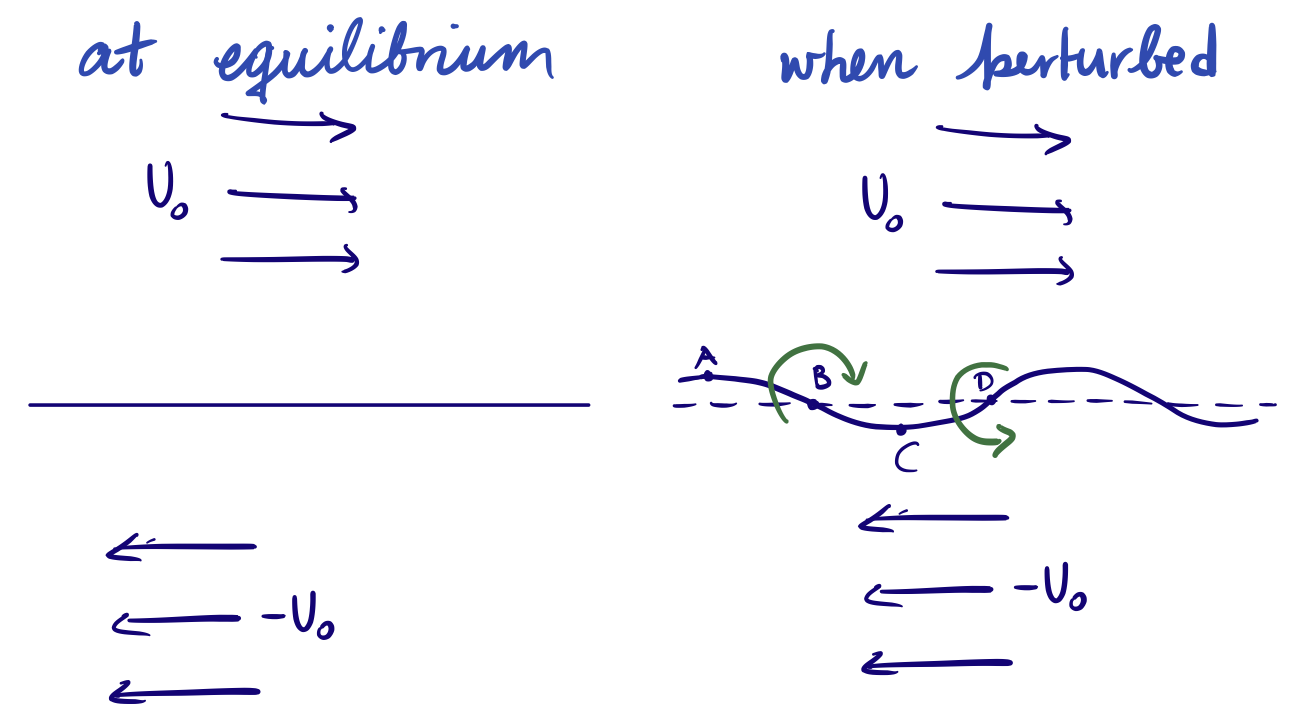 at equilibrium
U₀
-U₀
when perturbed
U₀
A
B
D
C
-U₀